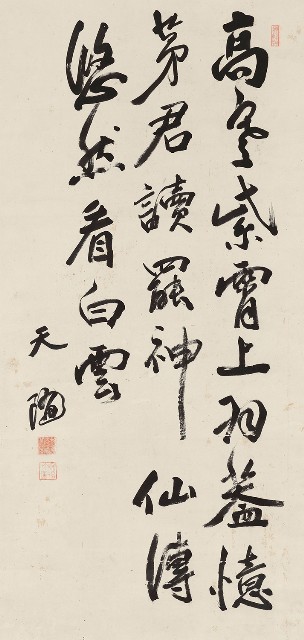 高紫霄上羽蓋憶
茅君讀罷神仙傳
悠然看白雲
天